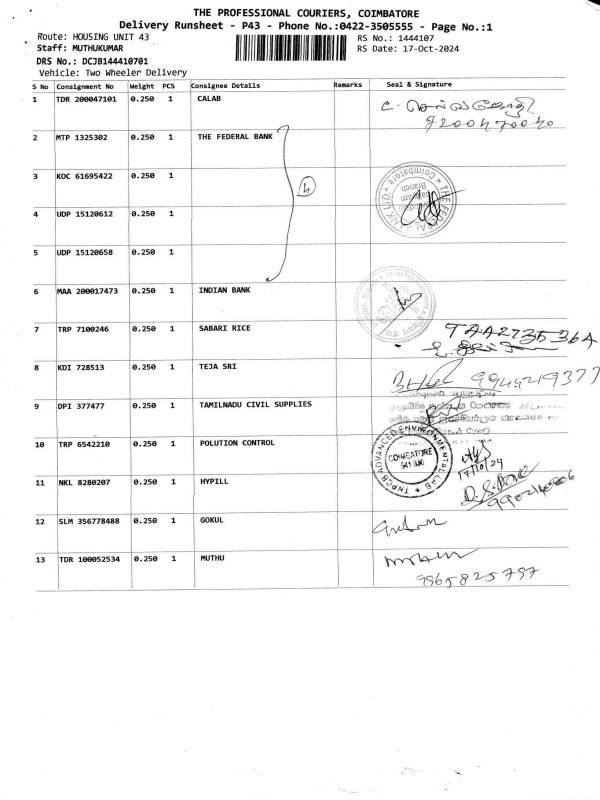 THE PROFESSIONAL COURIERS, COIMBATORE
Delivery Runsheet - P43 - Phone No.:0422-3505555 - Page No.:1
Route: HOUSING UNIT 43
RS No.: 1444107
Staff: MUTHUKUMAR
RS Date: 17-Oct-2024
DRS No.: DCJB144410701
Vehicle: Two Wheeler Delivery
S No Consignment No Weight PCS Consignee Details Remarks Seal & Signature
1 TDR 200047101 0.250 1 CALAB
2 MTP 1325302 0.250 1 THE FEDERAL BANK
3 KOC 61695422 0.250 1
4 UDP 15120612 0.250 1
5 UDP 15120658 0.250 1
4
THE FEDERAL BANK LTD * Coimbatore
Branch
6 MAA 200017473 0.250 1 INDIAN BANK
7 TRP 7100246 0.250 1 SABARI RICE
8 KDI 728513 0.250 1 TEJA SRI
9944219377
9 DPI 377477 0.250 1 TAMILNADU CIVIL SUPPLIES
10 TRP 6542210 0.250 1 POLUTION CONTROL
TNPCB ADVANCED ENVIRONMENTAL LAB
COIMBATORE
17/10/24
11 NKL 8280207 0.250 1 HYPILL
12 SLM 356778488 0.250 1 GOKUL
13 TDR 100052534 0.250 1 MUTHU
9965825797